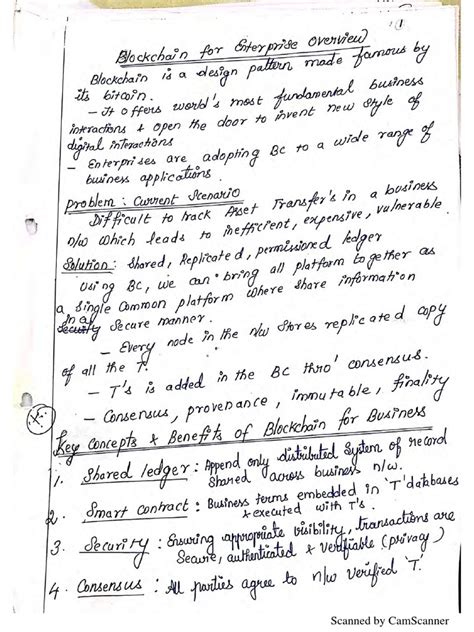 1
Blockchain for Enterprise Overview
Blockchain is a design pattern made famous by
its bitcoin.
- It offers world's most fundamental business
interactions & open the door to invent new style of
digital interactions
- Enterprises are adopting BC to a wide range of
business applications.
Problem: Current Scenario
Difficult to track Asset Transfer's in a business
n/w which leads to inefficient, expensive, vulnerable.
Solution: Shared, Replicated, permissioned ledger
Using BC, we can bring all platform together as
a single common platform where share information
in a secure manner.
- Every node in the n/w stores replicated copy
of all the T.
- T's is added in the BC thro' consensus.
- Consensus, provenance, immutable, finality
Key Concepts & Benefits of Blockchain for Business
1. Shared ledger: Append only distributed System of record
shared across business n/w.
2. Smart contract: Business terms embedded in 'T' databases
& executed with T's.
3. Security: Ensuring appropriate visibility, transactions are
Secure, authenticated & verifiable (privacy)
4. Consensus: All parties agree to n/w verified 'T'.
Scanned by CamScanner